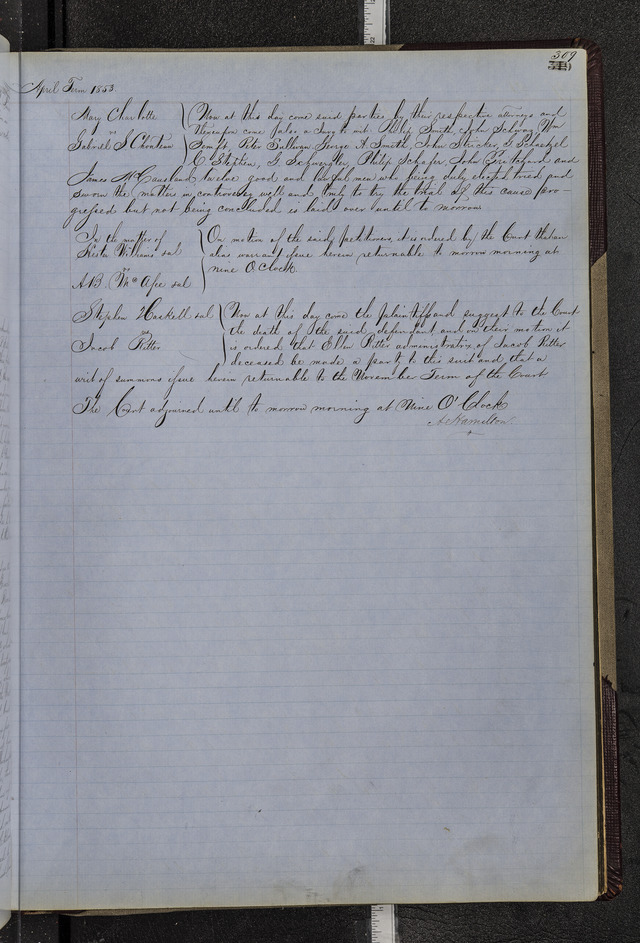 309
April Term 1853
Mary Charlotte
vs
Gabriel S Chouteau
Now at this day come said parties by their respective attorneys and
thereupon come also a Jury to wit Philip Smith, John Wm
Senft, Peter Sullivan George A Smith, John Stricker, G Schaeffel
C Stettin, G Philip Schafer, John and
James McCausland twelve good and lawful men who being duly elected tried and
sworn the matters in controversy well and truly to try the trial of this cause pro-
gressed but not being concluded is laid over until to morrow
In the matter of
Williams et al
vs
A.B. Mc Afee et al
On motion of the said petitioners, it is ordered by the Court that an
alias warrant issue herein returnable to morrow morning at
nine O Clock
Stephen Haskell et al
vs
Jacob Ritter
Now at this day come the plaintiffs and suggest to the Court
the death of the said defendant and on their motion it
is ordered that Ellen Ritter administratrix of Jacob Ritter
deceased be made a party to this suit and that a
writ of summons issue herein returnable to the November Term of the Court
The Court adjourned until to morrow morning at Nine O'Clock
A. Hamilton